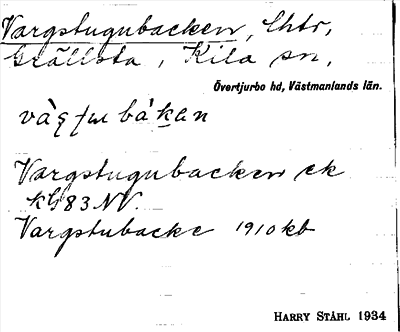 Vargstugubacken, lhtr,
Grällsta, Kila sn,
Övertjurbo hd, Västmanlands län.
Vargstugubacken ek
83 NV.
Vargstubacke 1910 kb
HARRY STÅHL 1934